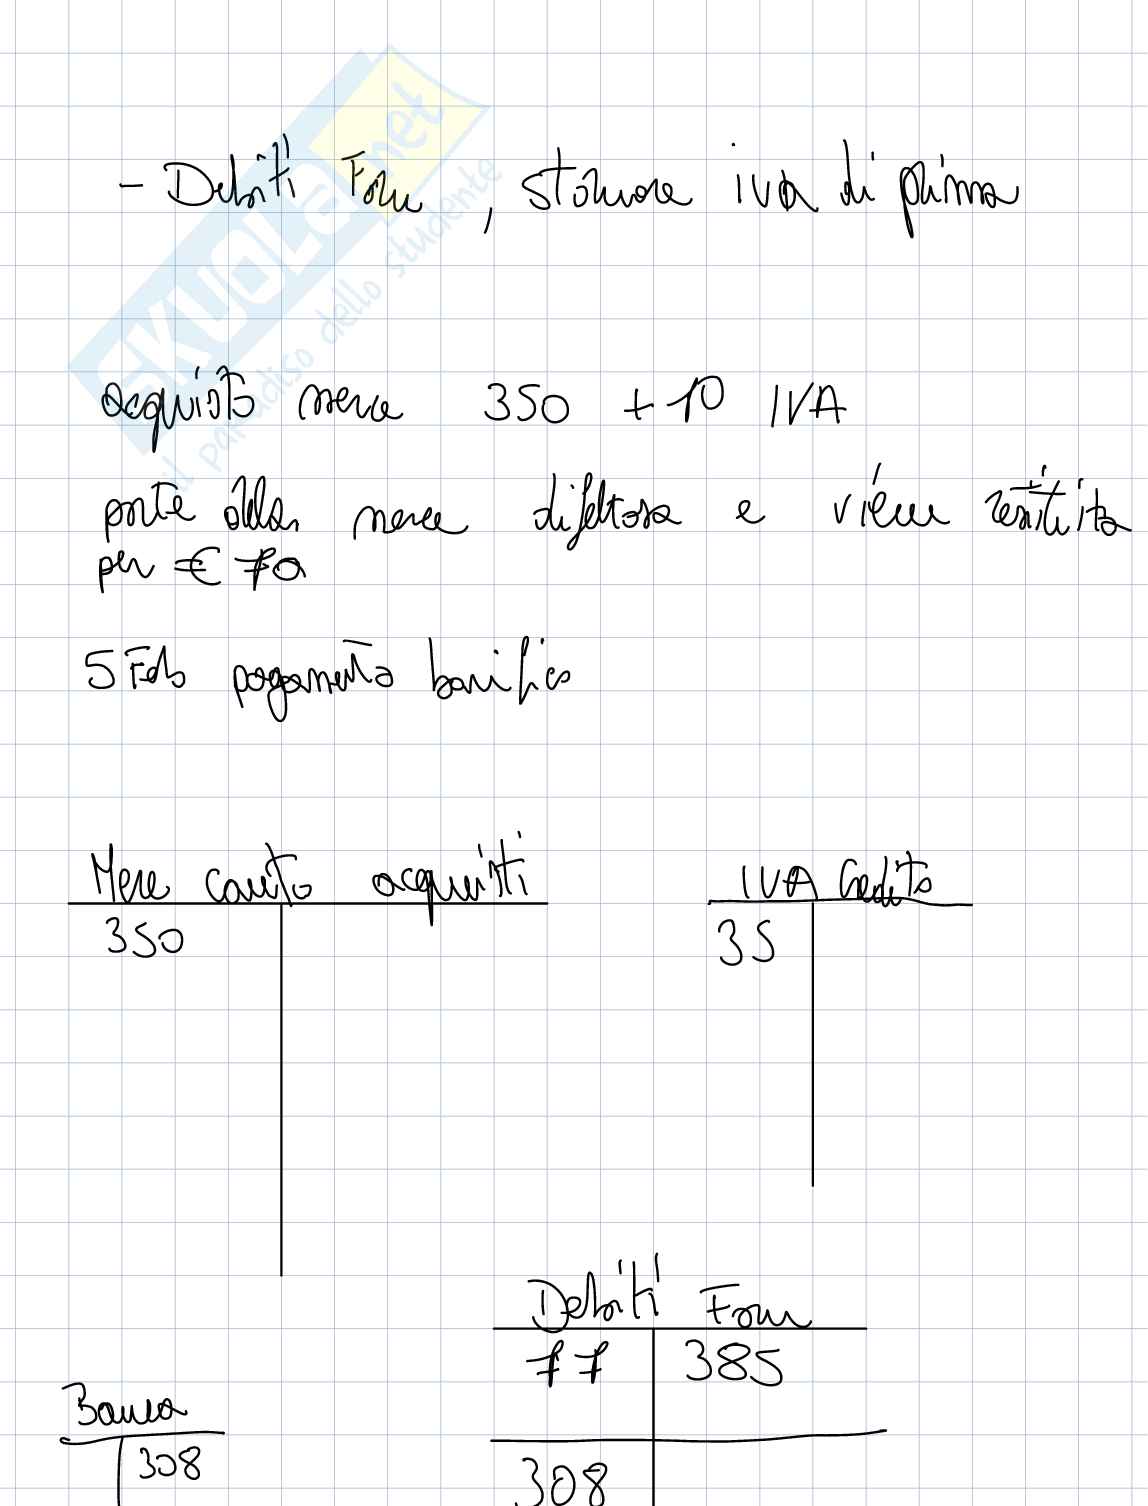 - Debiti Forn, stornare iva di prima
acquisto merce 350 + 10 IVA
parte della merce difettosa e viene restituita
per € 70
5 Feb pagamento bonifico
Merce conto acquisti
IVA Credito
350
35
Debiti Forn
77 385
Banca
308
308
SKUOLA.net
il paradiso dello studente